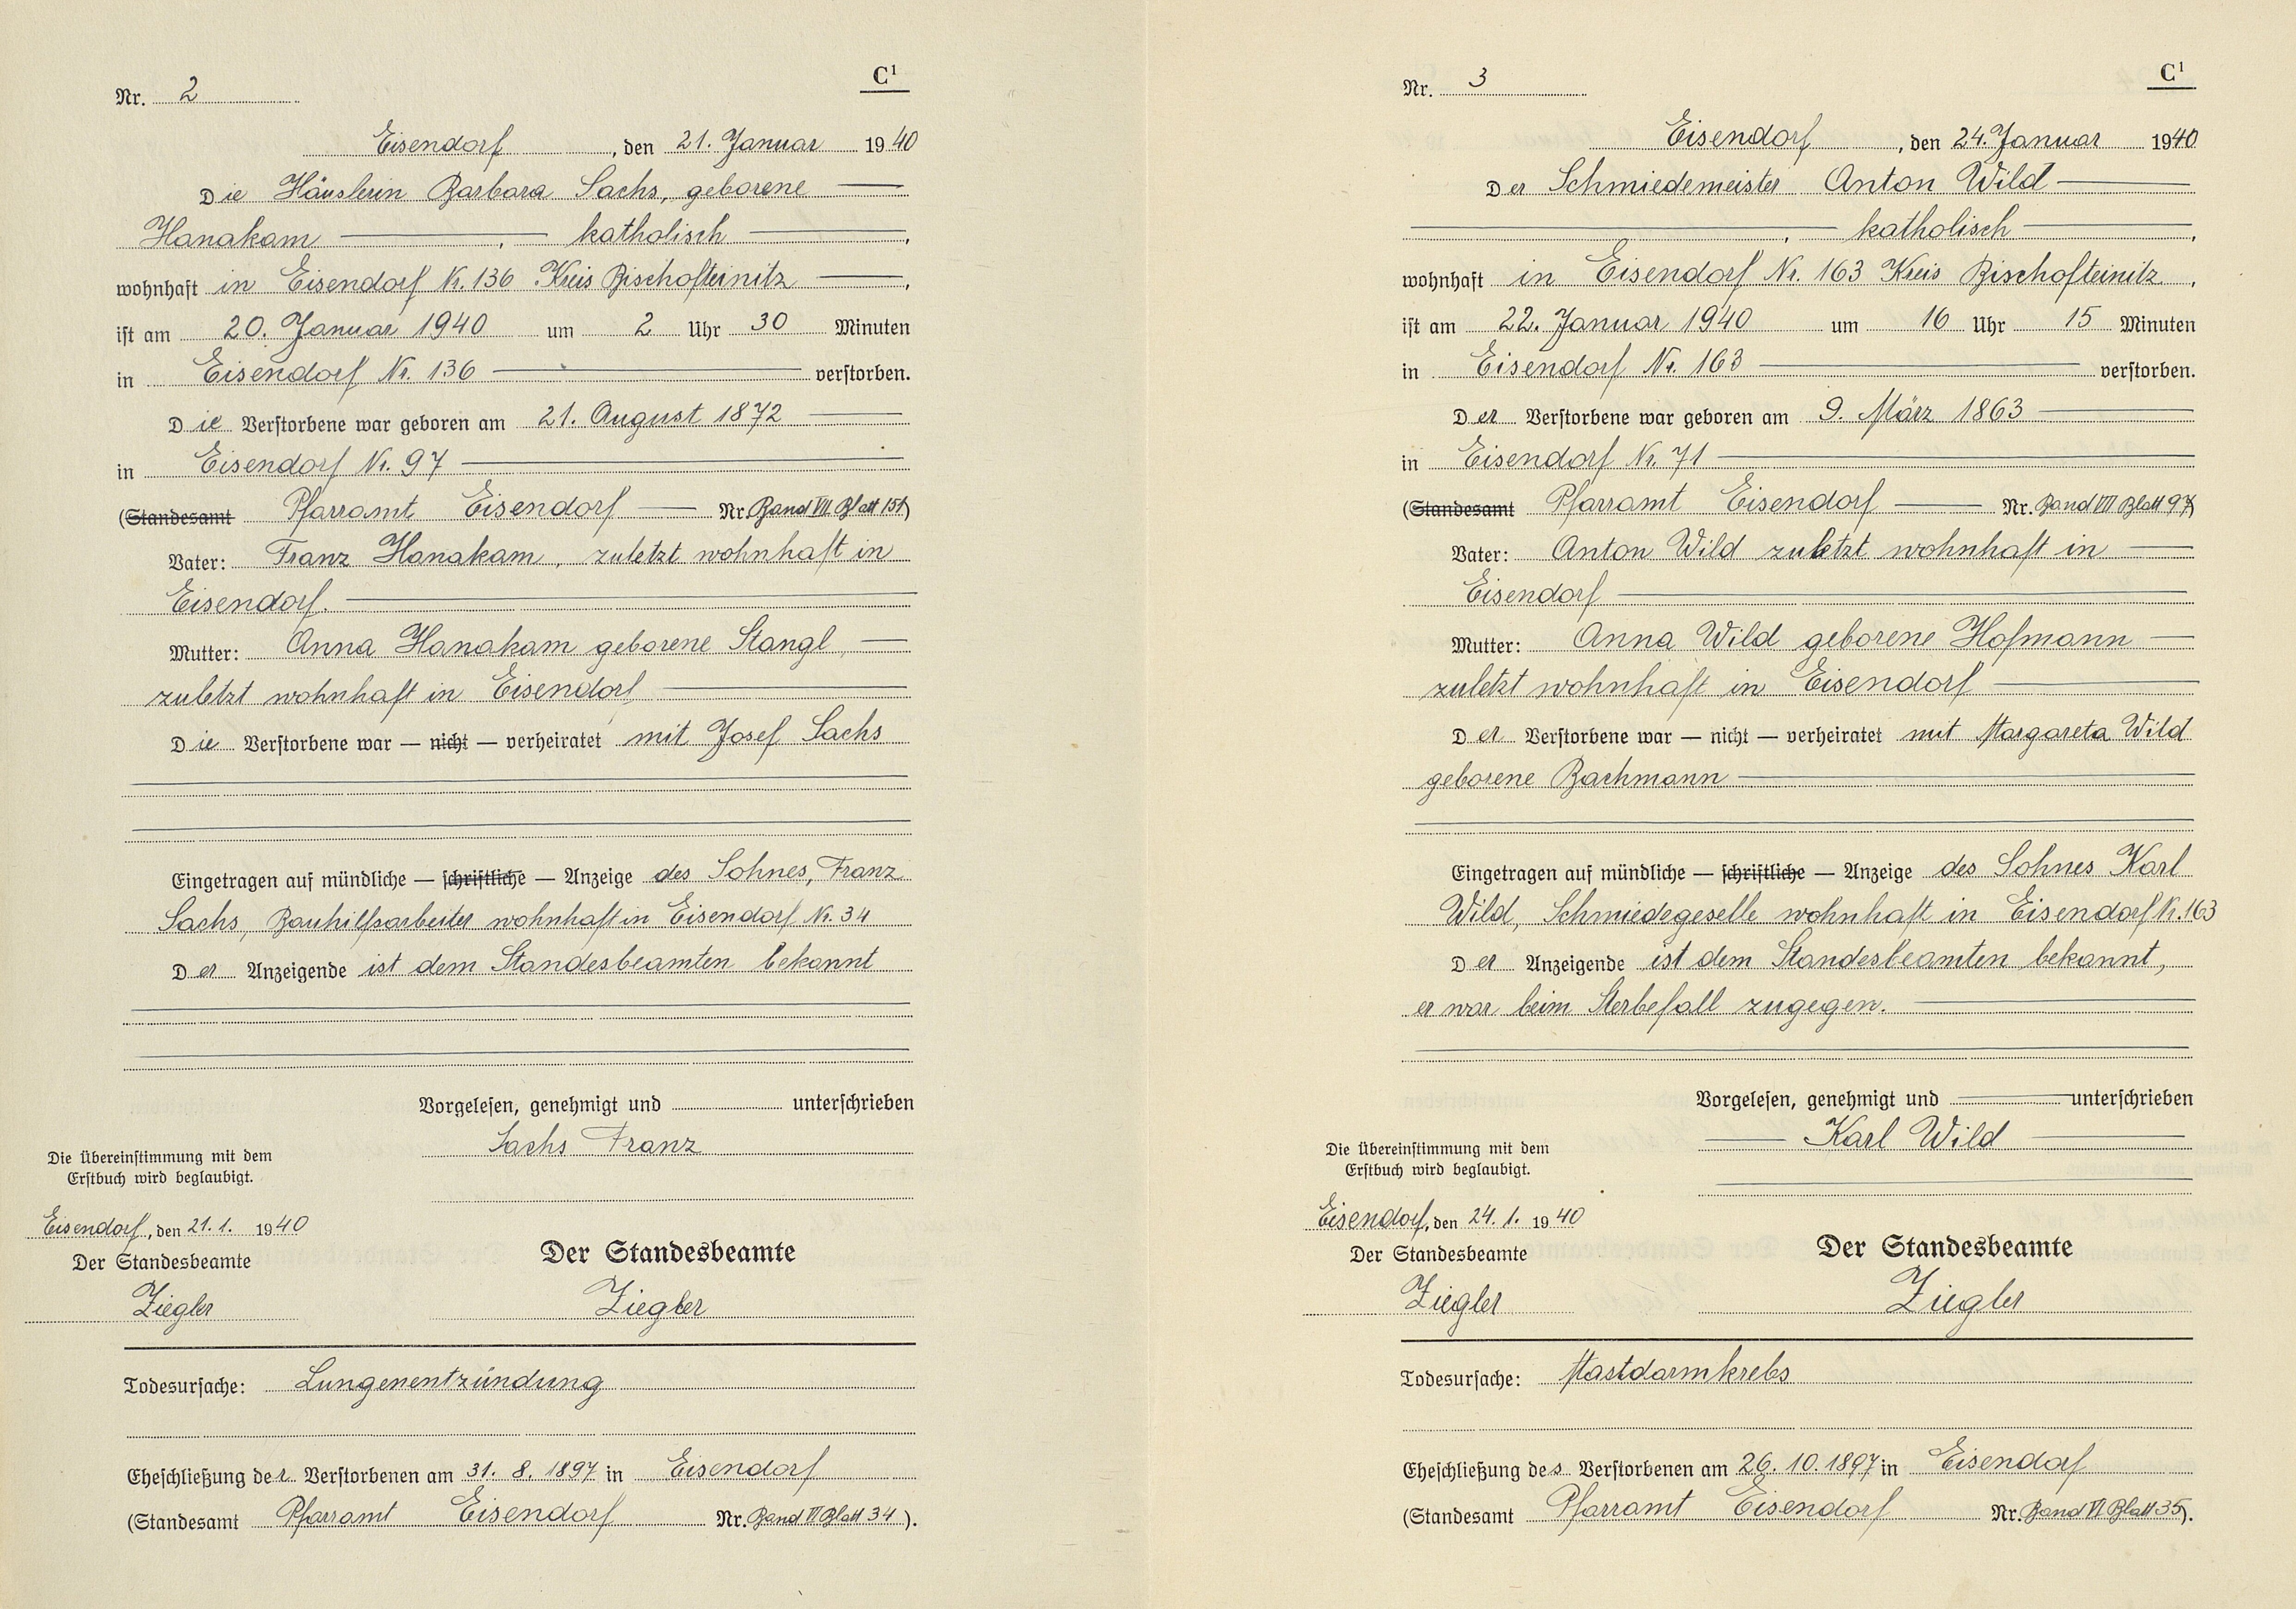 Nr. 2
C¹
Eisendorf, den 21. Januar 1940
Die Häuslerin Barbara Sachs, geborene
Hanakam, katholisch,
wohnhaft in Eisendorf Nr. 136 Kreis Bischofteinitz,
ist am 20. Januar 1940 um 2 Uhr 30 Minuten
in Eisendorf Nr. 136 verstorben.
Die Verstorbene war geboren am 21. August 1872
in Eisendorf Nr. 97
(Standesamt Pfarramt Eisendorf — Nr. Band VII Blatt 151)
Vater: Franz Hanakam, zuletzt wohnhaft in
Eisendorf.
Mutter: Anna Hanakam geborene Stangl,
zuletzt wohnhaft in Eisendorf
Die Verstorbene war — nicht — verheiratet mit Josef Sachs
Eingetragen auf mündliche — schriftliche — Anzeige des Sohnes, Franz
Sachs, Bauhilfsarbeiter wohnhaft in Eisendorf Nr. 34
Der Anzeigende ist dem Standesbeamten bekannt
Vorgelesen, genehmigt und unterschrieben
Sachs Franz
Die Übereinstimmung mit dem
Erstbuch wird beglaubigt.
Eisendorf, den 21. 1. 1940
Der Standesbeamte
Ziegler
Der Standesbeamte
Ziegler
Todesursache: Lungenentzündung
Eheschließung der Verstorbenen am 31. 8. 1897 in Eisendorf
(Standesamt Pfarramt Eisendorf Nr. Band VI Blatt 34).
Nr. 3
C¹
Eisendorf, den 24. Januar 1940
Der Schmiedemeister Anton Wild
, — katholisch,
wohnhaft in Eisendorf Nr. 163 Kreis Bischofteinitz,
ist am 22. Januar 1940 um 16 Uhr 15 Minuten
in Eisendorf Nr. 163 verstorben.
Der Verstorbene war geboren am 9. März 1863
in Eisendorf Nr. 71
(Standesamt Pfarramt Eisendorf — Nr. Band VII Blatt 97)
Vater: Anton Wild zuletzt wohnhaft in
Eisendorf
Mutter: Anna Wild geborene Hofmann
zuletzt wohnhaft in Eisendorf
Der Verstorbene war — nicht — verheiratet mit Margareta Wild
geborene Bachmann
Eingetragen auf mündliche — schriftliche — Anzeige des Sohnes Karl
Wild, Schmiedegeselle wohnhaft in Eisendorf Nr. 163
Der Anzeigende ist dem Standesbeamten bekannt,
er war beim Sterbefall zugegen.
Vorgelesen, genehmigt und unterschrieben
Karl Wild
Die Übereinstimmung mit dem
Erstbuch wird beglaubigt.
Eisendorf, den 24. 1. 1940
Der Standesbeamte
Ziegler
Der Standesbeamte
Ziegler
Todesursache: Mastdarmkrebs
Eheschließung des Verstorbenen am 26. 10. 1897 in Eisendorf
(Standesamt Pfarramt Eisendorf Nr. Band VI Blatt 35).